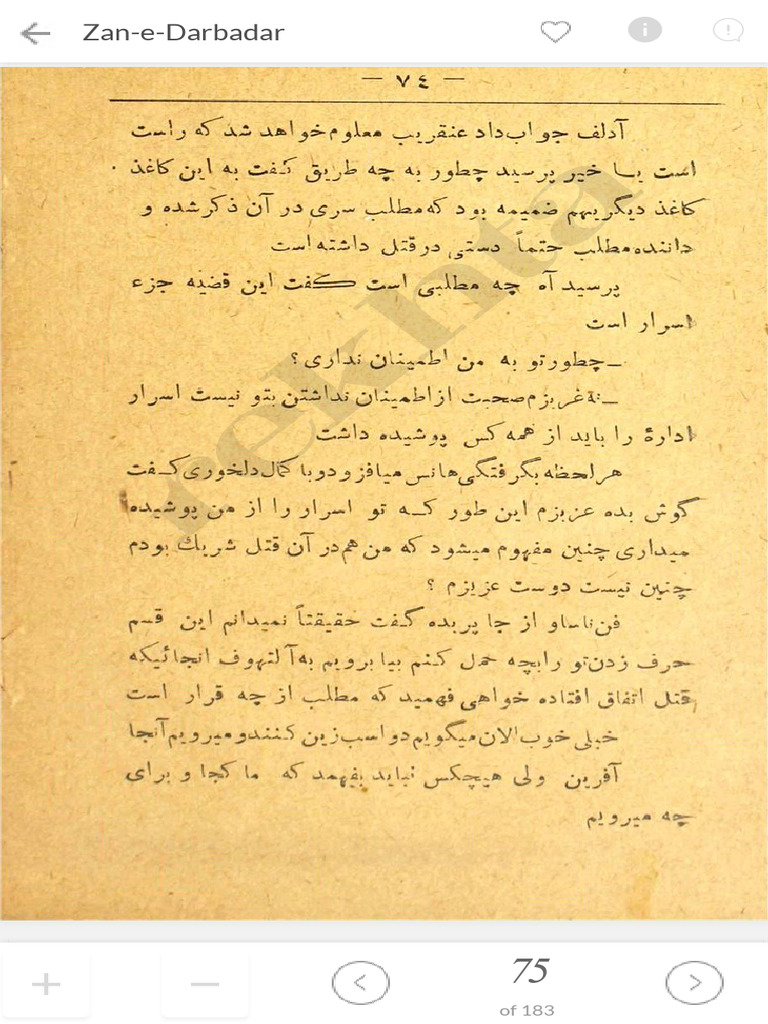 Zan-e-Darbadar
— ٧٤ —
آدلف جواب داد عنقریب معلوم خواهد شد که راست
است یا خیر پرسید چطور به چه طریق گفت به این کاغذ
کاغذ دیگریهم ضمیمه بود که مطلب سری در آن ذکر شده و
داننده مطلب حتماً دستی در قتل داشته است
پرسید آه چه مطلبی است گفت این قضیه جزء
اسرار است
ـ چطور تو به من اطمینان نداری ؟
ـ نه عزیزم صحبت از اطمینان نداشتن بتو نیست اسرار
ادارهٔ را باید از همه کس پوشیده داشت
هر لحظه بگرفتگی هانس میافزود و با کمال دلخوری گفت
گوش بده عزیزم این طور که تو اسرار را از من پوشیده
میداری چنین مفهوم میشود که من هم در آن قتل شریك بودم
چنین نیست دوست عزیزم ؟
فن ناساو از جا پریده گفت حقیقتاً نمیدانم این قسم
حرف زدن تو را بچه حمل کنم بیا برویم به آلتهوف انجائیکه
قتل اتفاق افتاده خواهی فهمید که مطلب از چه قرار است
خیلی خوب الان میگویم دو اسب زین کنند و میرویم آنجا
آفرین ولی هیچکس نباید بفهمد که ما کجا و برای
چه میرویم
rekhta
75
of 183